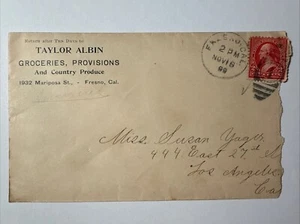 Return after Ten Days to
TAYLOR ALBIN
GROCERIES, PROVISIONS
And Country Produce
1932 Mariposa St., - Fresno, Cal.
2 PM
NOV 18
Miss Susan Yager
444 East 27th
Los Angeles